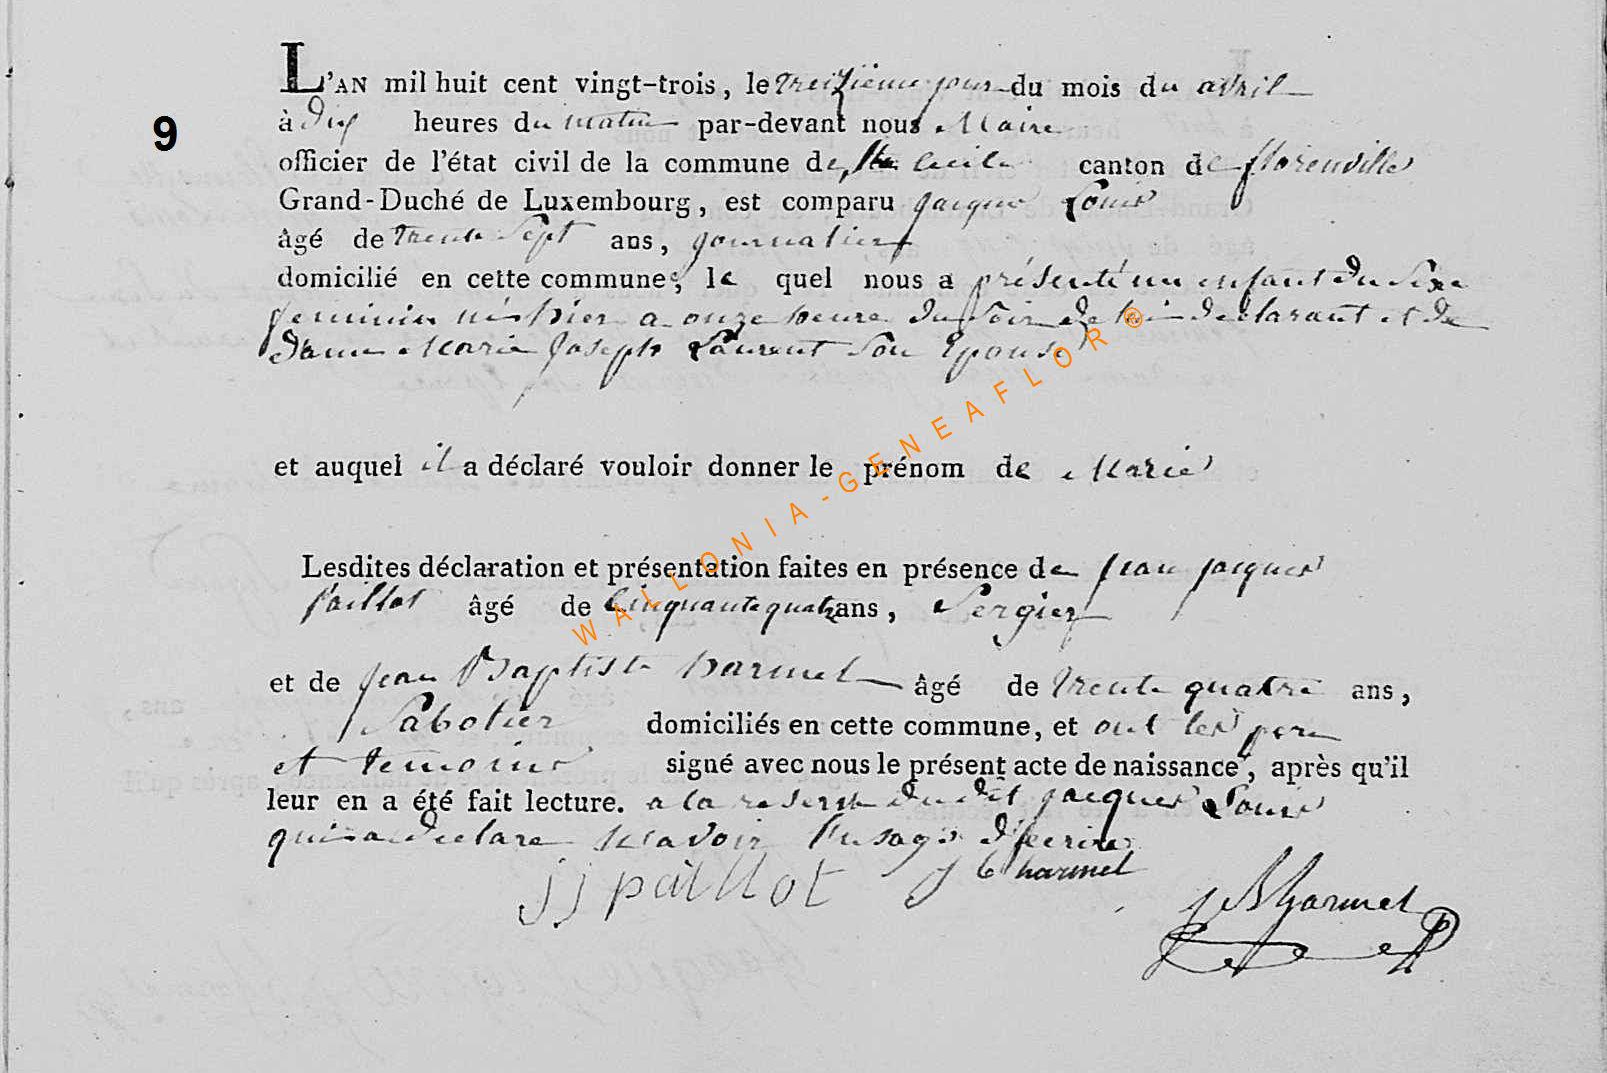 L'AN mil huit cent vingt-trois, le treizieme jour du mois du avril
9
à dix heures du matin par-devant nous Maire
officier de l'état civil de la commune de Ste Cecile canton de florenville
Grand-Duché de Luxembourg, est comparu jacque Louis
âgé de trente Sept ans, journalier
domicilié en cette commune, le quel nous a présenté un enfant du Sexe
feminin né hier a onze heure du Soir de lui declarant et de
dame Marie Joseph Laurent Son Epouse
et auquel il a déclaré vouloir donner le prénom de Marie
Lesdites déclaration et présentation faites en présence de jean jacques
paillot âgé de Cinquante quatre ans, Sergier
et de jean Baptiste harmel âgé de trente quatre ans,
Sabotier domiciliés en cette commune, et ont les pere
et temoins signé avec nous le présent acte de naissance, après qu'il
leur en a été fait lecture. a la reserve dudit jacques Louis
qui a declare avoir l'usage d'Ecrire
jj paillot j b harmel
j B harmel
WALLONIA-GENEAFLOR ®